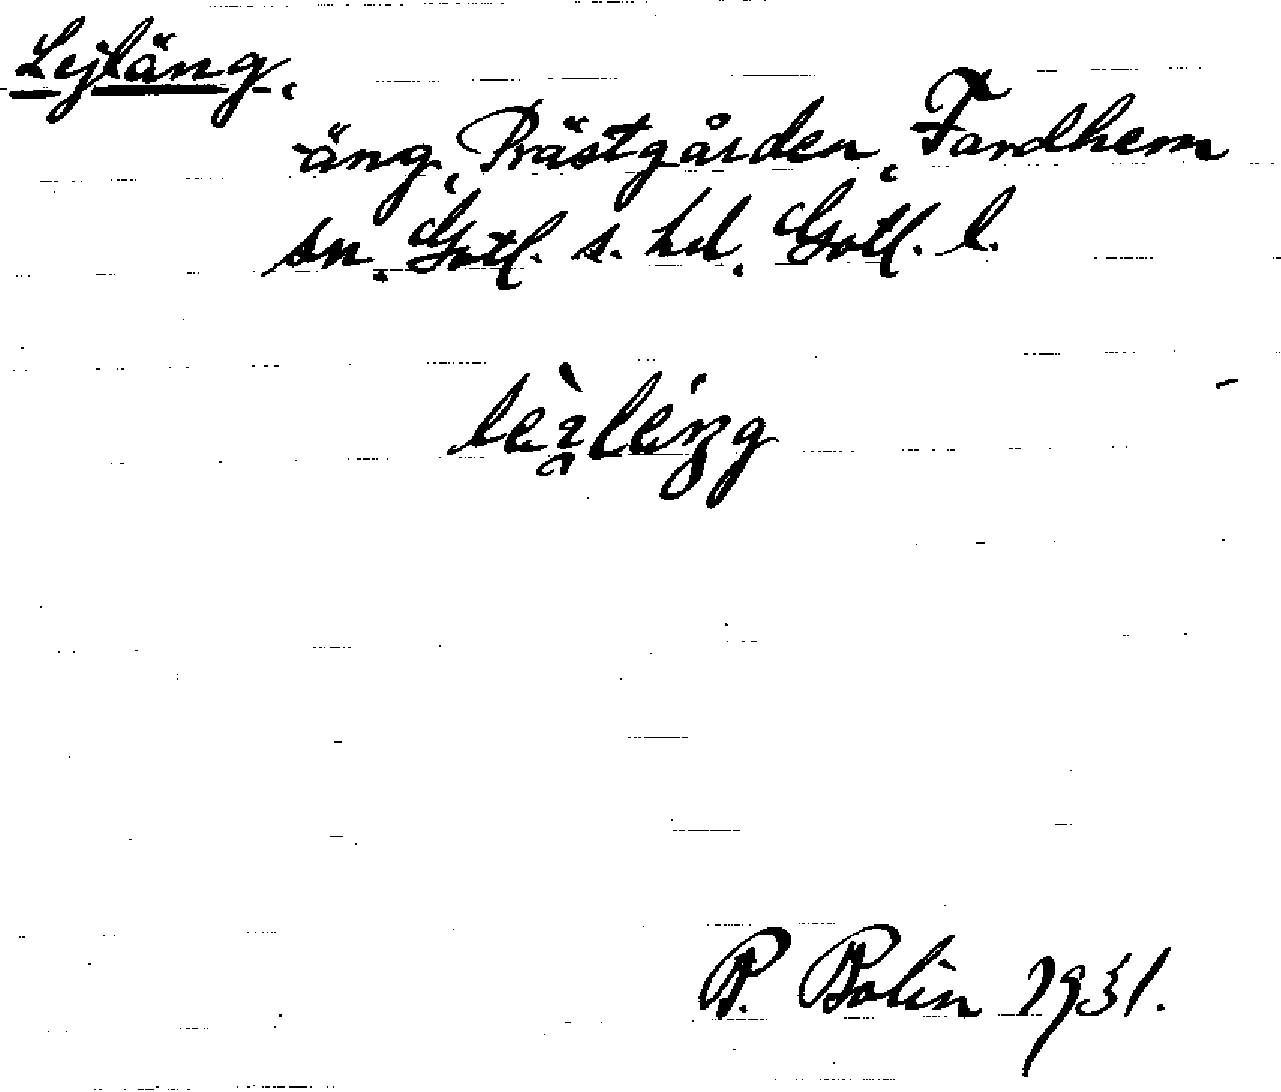 Lejläng.
äng, Prästgården, Fardhem
sn. Gotl. s. hd. Gotl. l.
B. Bolin 1931.